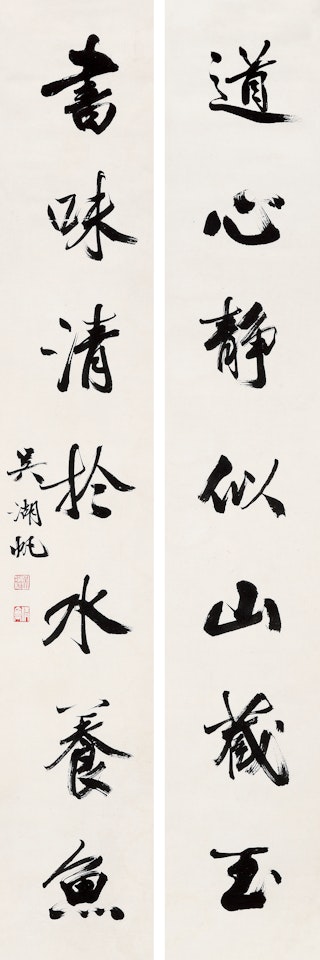 道心静似山藏玉
書味清於水養魚
吳湖帆